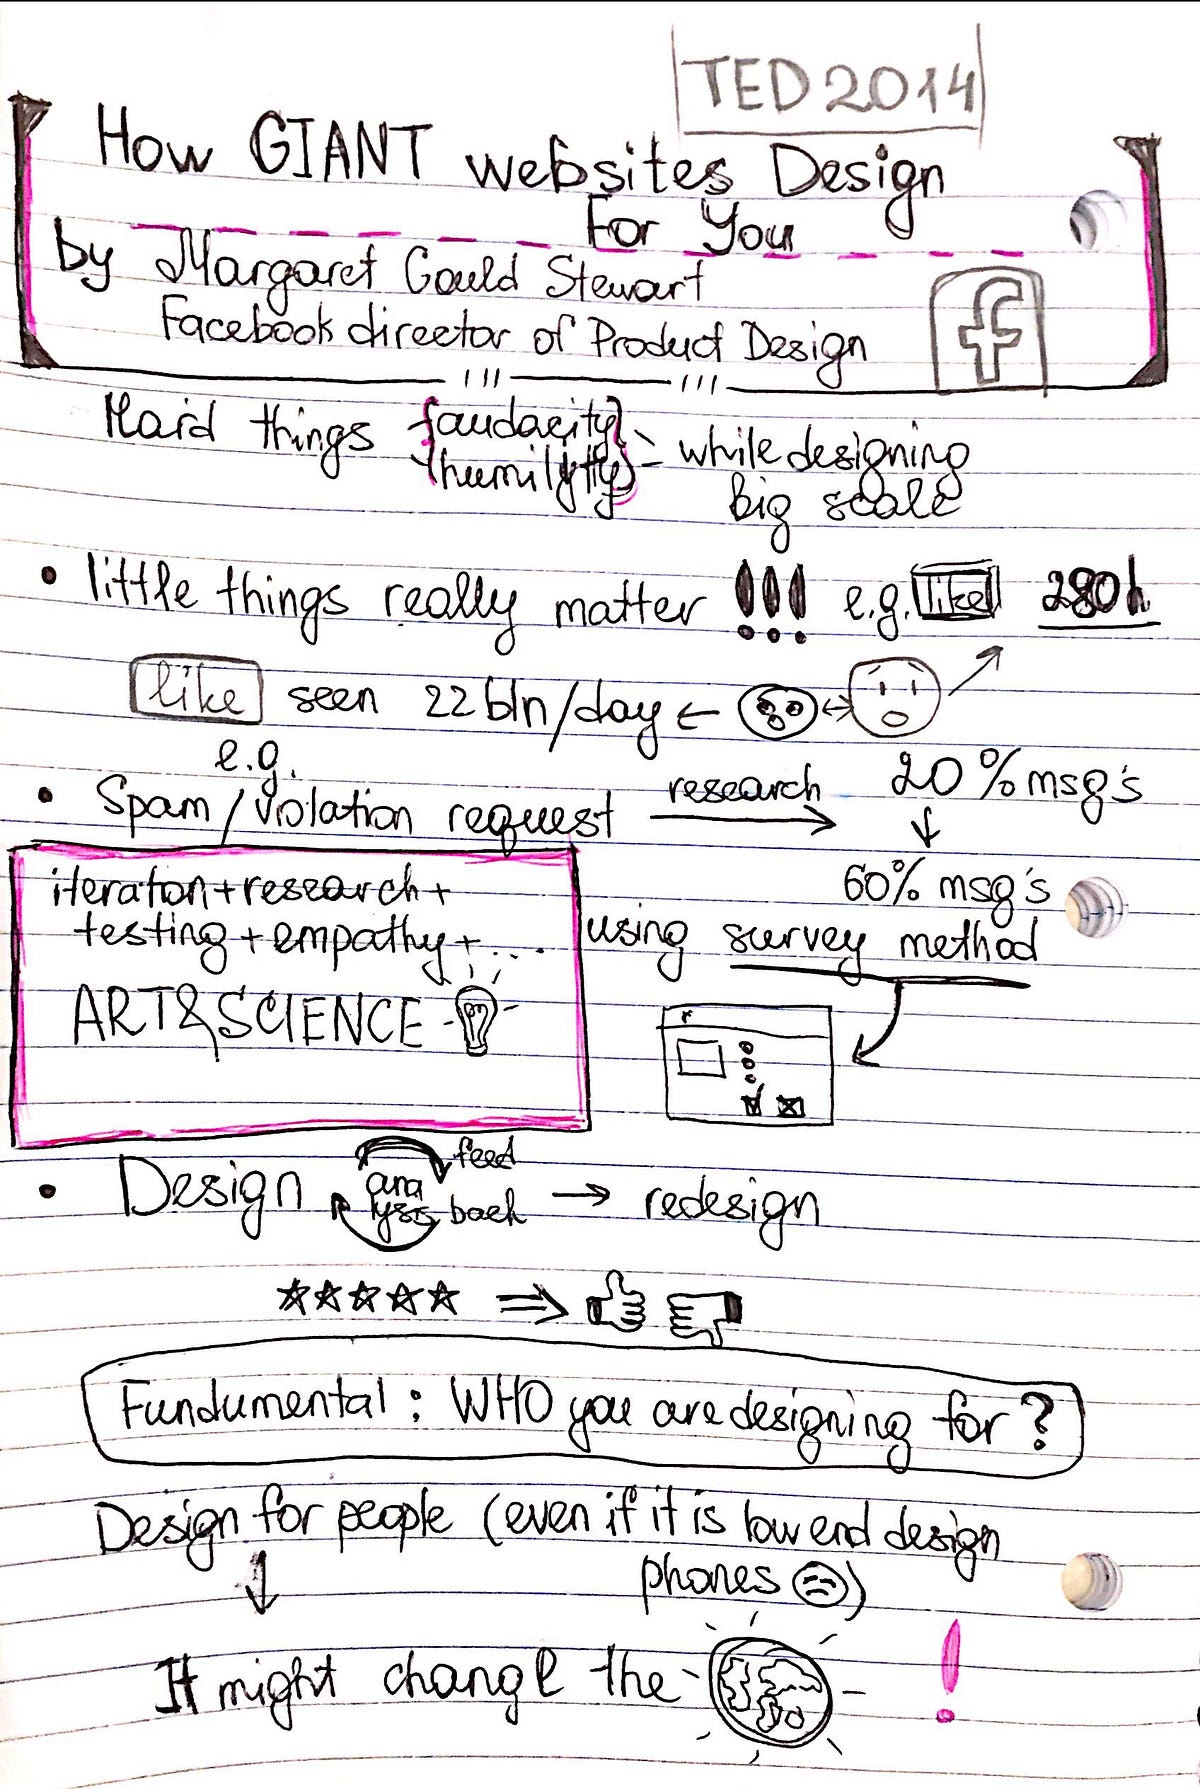 TED2014
How GIANT websites Design
For You
by Margaret Gould Stewart
Facebook director of Product Design
f
Hard things {audacity} while designing
{humilytty} big scale
• little things really matter !!! e.g. like 280h
like seen 22bln/day ←
e.g.
• Spam/violation request research → 20% msg's
↓
60% msg's
using survey method
iteration+research+
testing+empathy+...
ART&SCIENCE
• Design analysis feed back → redesign
☆☆☆☆☆ ⇒
Fundumental: WHO you are designing for?
Design for people (even if it is low end design
phones)
↓
It might change the !